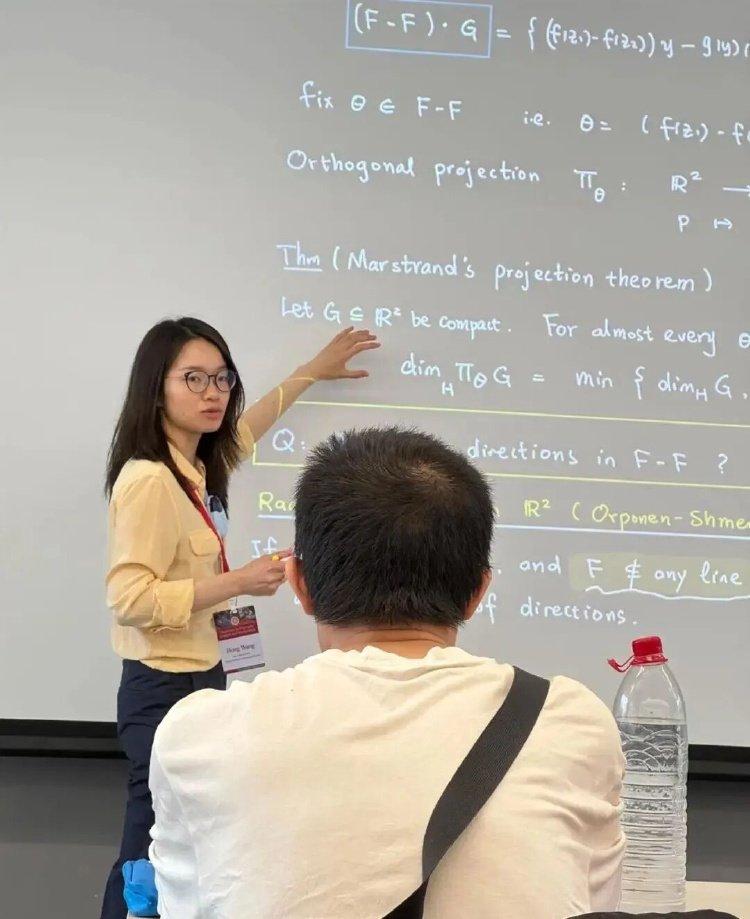 (F-F)·G = { (f(z₁)-f(z₂)) y - g(y)
fix θ ∈ F-F i.e. θ = (f(z₁) - f
Orthogonal projection π_θ : ℝ² →
p ↦
Thm (Marstrand's projection theorem)
Let G ⊆ ℝ² be compact. For almost every θ
dim_H π_θ G = min { dim_H G,
Q: directions in F-F ?
ℝ² (Orponen-Shme
If and F ⊄ any line
of directions.
Hong Wang